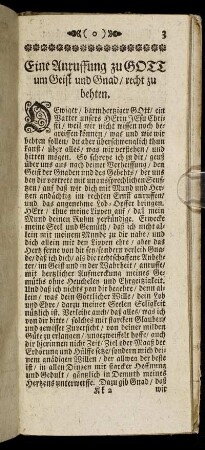 ( o ) 3
Eine Anruffung zu GOTT
um Geist und Gnad / recht zu
behten.
O Ewiger / barmhertziger GOtt / ein
Vatter unsers HErrn JEsu Chri-
sti / weil wir nicht wissen noch be-
greiffen können / was und wie wir
behten sollen / du aber überschwenglich thun
kanst / über alles / was wir verstehen / und
bitten mögen. So schreye ich zu dir / geuß
über uns auß nach deiner Verheissung / den
Geist der Gnaden und des Gebehts / der uns
bey dir vertrete mit unaussprechlichen Seuff-
zen / auf daß wir dich mit Mund und Her-
zen andächtig im rechten Ernst anruffen /
und das angenehme Lob-Opffer bringen.
HErr / thue meine Lippen auf / daß mein
Mund deinen Ruhm verkündige. Erwecke
meine Seel und Gemüth / daß ich nicht al-
lein mit meinem Munde zu dir nahe / und
dich allein mit den Lippen ehre / aber das
Hertz ferne von dir sey / sondern verleih Gnad
daß ich dich / als die rechtschaffene Anbeh-
ter / im Geist und in der Wahrheit / anruffe /
mit hertzlicher Aufmerckung meines Ge-
müths ohne Heucheley und Ehrgeitzigkeit.
Und daß ich nichts von dir begehre / denn al-
lein / was dein Göttlicher Wille / dein Lob
und Ehre / darzu meiner Seelen Seligkeit
nützlich ist. Verleihe auch / daß alles / was ich
von dir bitte / solches mit starcken Glauben /
und gewisser Zuversicht / von deiner milden
Güte zu erlangen / ungezweiffelt hoffe / auch
dir hierinnen nicht Zeit / Ziel oder Maaß der
Erhörung und Hülffe setze / sondern mich dei-
nem gnädigen Willen / der allweg der beste
ist / in allen Dingen mit starcker Hoffnung
und Gedult / gäntzlich in Demuth meines
Hertzens unterwerffe. Dazu gib Gnad / daß
Kk 2 wir